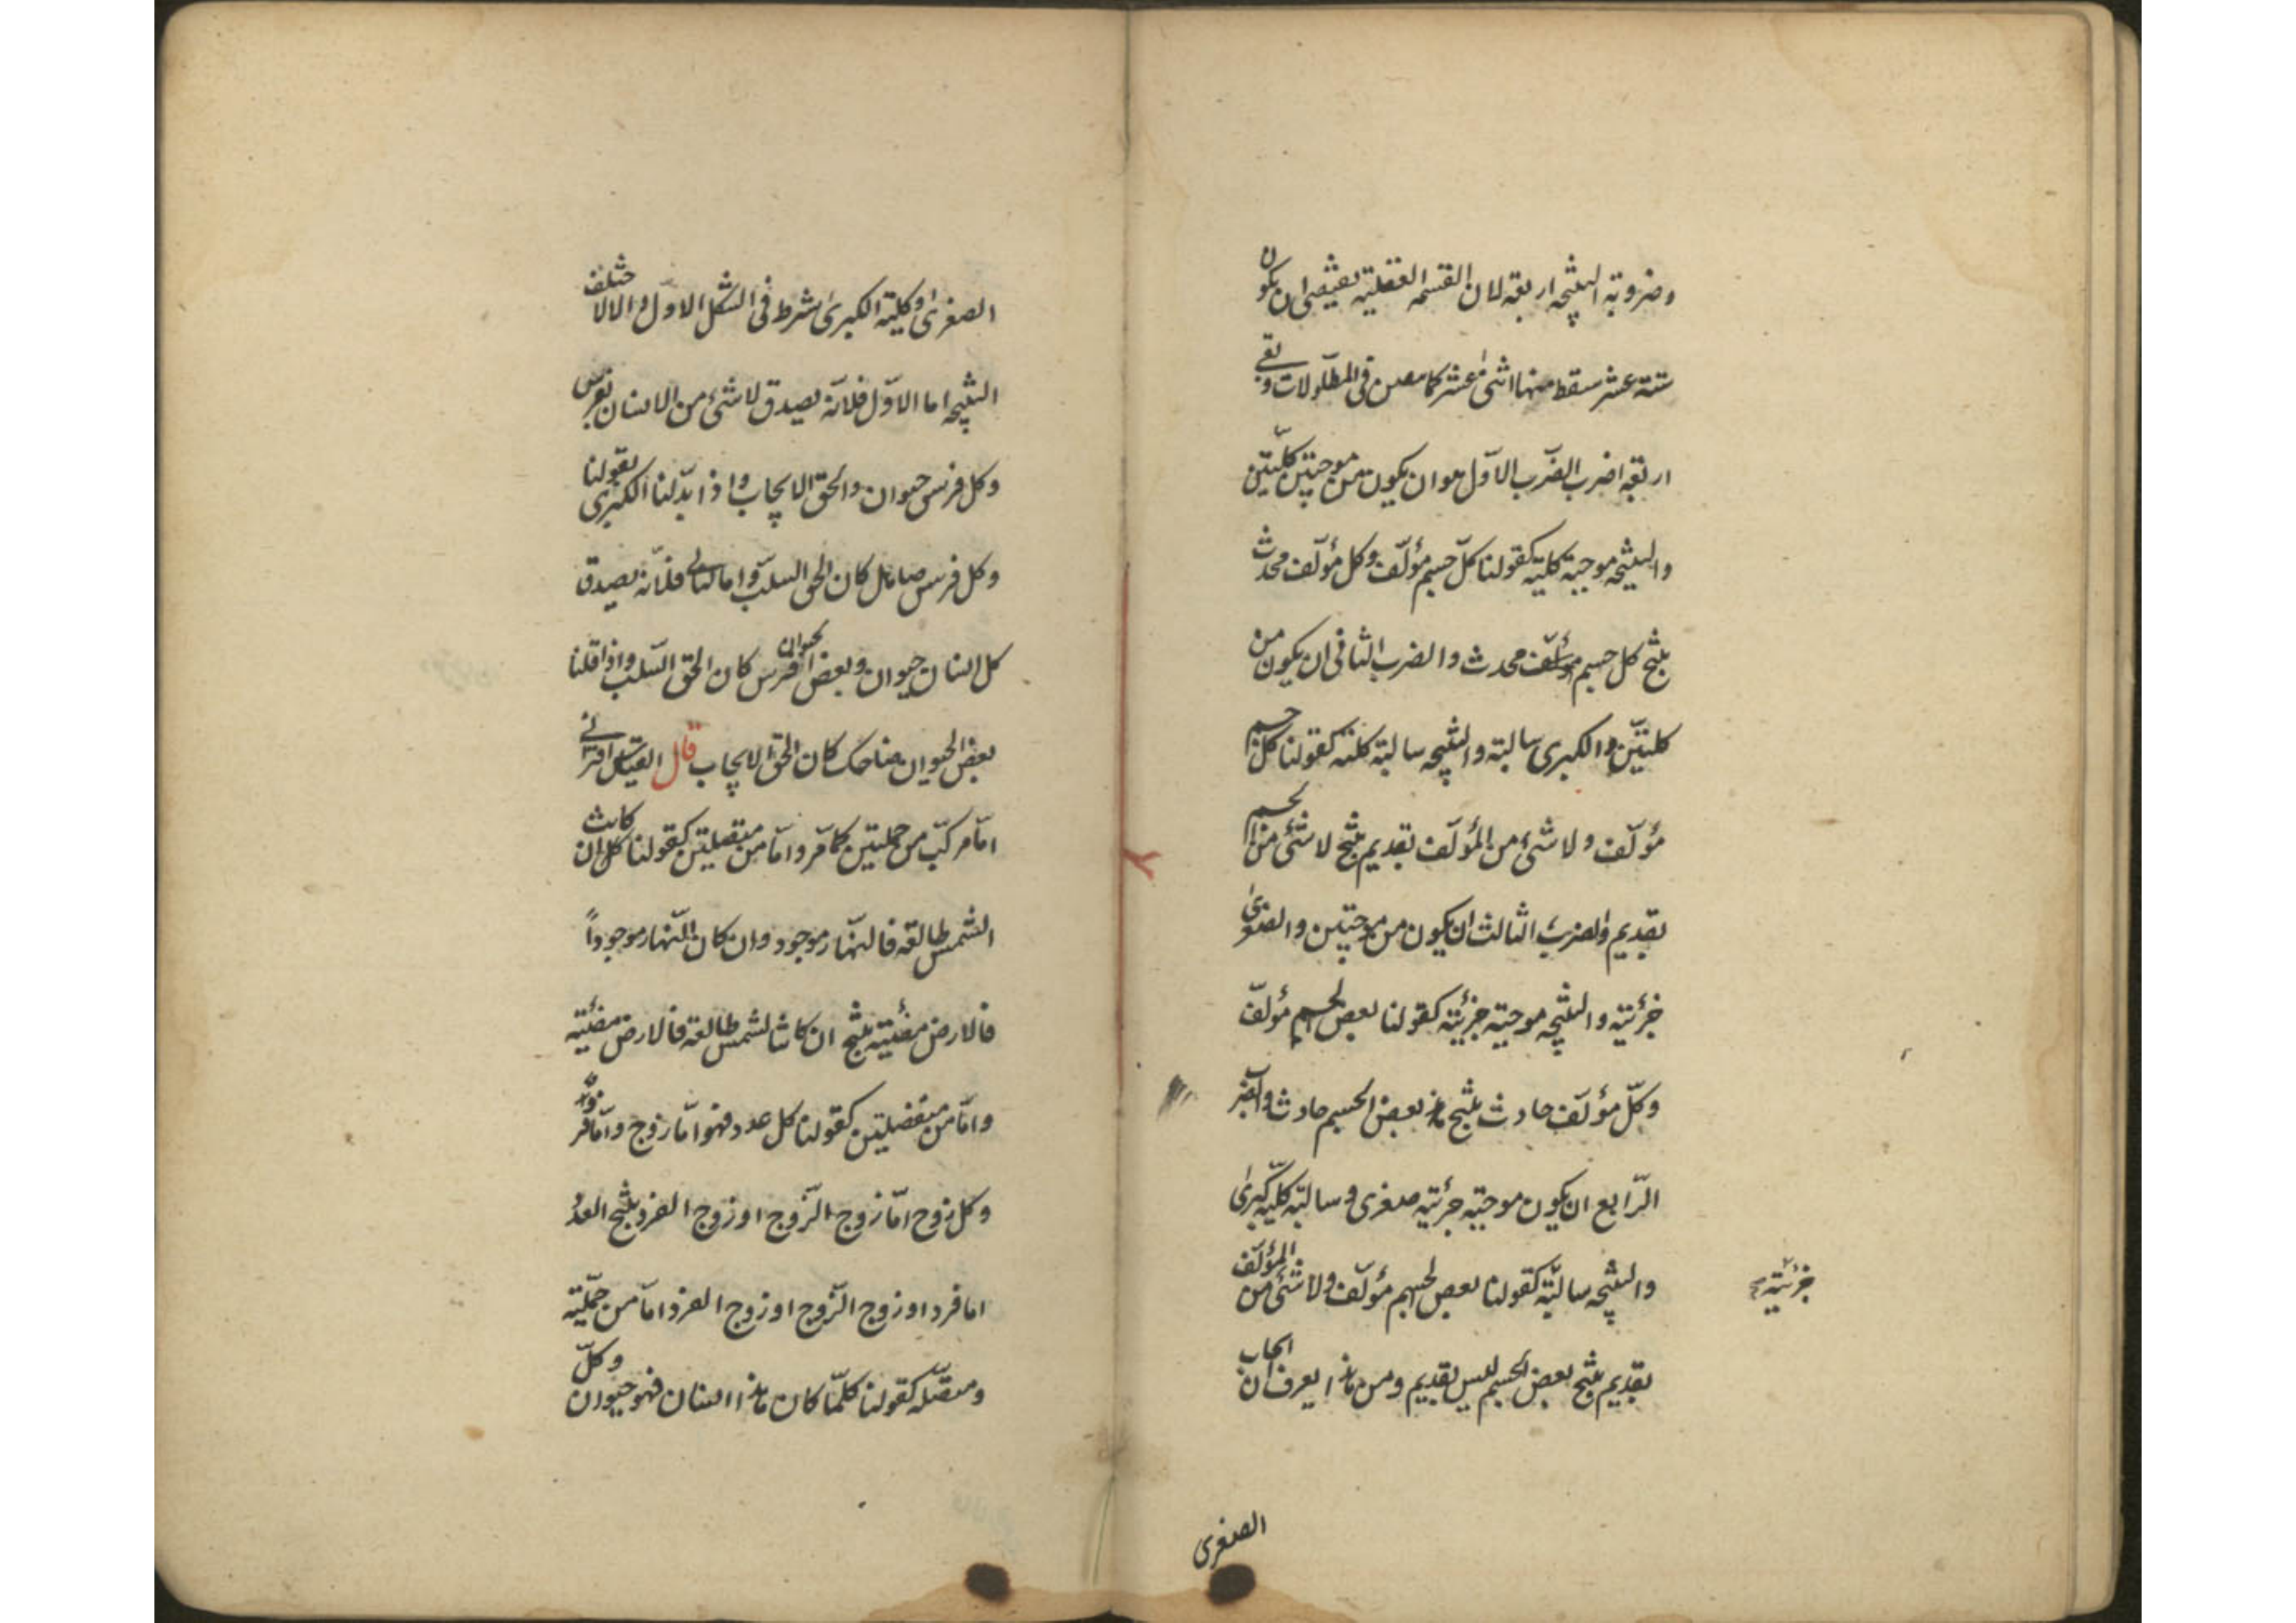 وضروبه المنتجة اربعة لان القسمة العقلية تقتضى ان يكون
ستة عشر سقط منها اثنى عشر كما بين فى المطولات وبقى
اربعة اضرب الضرب الاول هو ان يكون من موجبتين كليتين
والنتيجة موجبة كلية كقولنا كل جسم مؤلف وكل مؤلف محدث
ينتج كل جسم محدث والضرب الثانى ان يكون من
كليتين والكبرى سالبة والنتيجة سالبة كلية كقولنا كل جسم
مؤلف ولا شئ من المؤلف بقديم ينتج لا شئ من الجسم
بقديم والضرب الثالث ان يكون من موجبتين والصغرى
جزئية والنتيجة موجبة جزئية كقولنا بعض الجسم مؤلف
وكل مؤلف حادث ينتج بعض الجسم حادث والضرب
الرابع ان يكون موجبة جزئية صغرى وسالبة كلية كبرى
والنتيجة سالبة كقولنا بعض الجسم مؤلف ولا شئ من المؤلف
جزئية
بقديم ينتج بعض الجسم ليس بقديم ومن هذا يعرف ان ايجاب
الصغرى
الصغرى وكلية الكبرى شرط فى الشكل الاول والا لاختلف
النتيجة اما الاول فلانه يصدق لا شئ من الانسان بفرس
وكل فرس حيوان والحق الايجاب واذا بدلنا الكبرى بقولنا
وكل فرس صاهل كان الحق السلب واما الثانى فلانه يصدق
كل انسان حيوان وبعض الحيوان فرس كان الحق السلب واذا قلنا
بعض الحيوان ضاحك كان الحق الايجاب قال القياس اقترانى
اما مركب من حمليتين كما مر واما من متصلتين كقولنا كل ان كانت
الشمس طالعة فالنهار موجود وان كان النهار موجوداً
فالارض مضئية ينتج ان كانت الشمس طالعة فالارض مضئية
واما من منفصلتين كقولنا كل عدد فهو اما زوج واما فرد
وكل زوج اما زوج الزوج او زوج الفرد ينتج العدد
اما فرد او زوج الزوج او زوج الفرد اما من حملية
ومتصلة كقولنا كلما كان هذا انسان فهو حيوان وكل